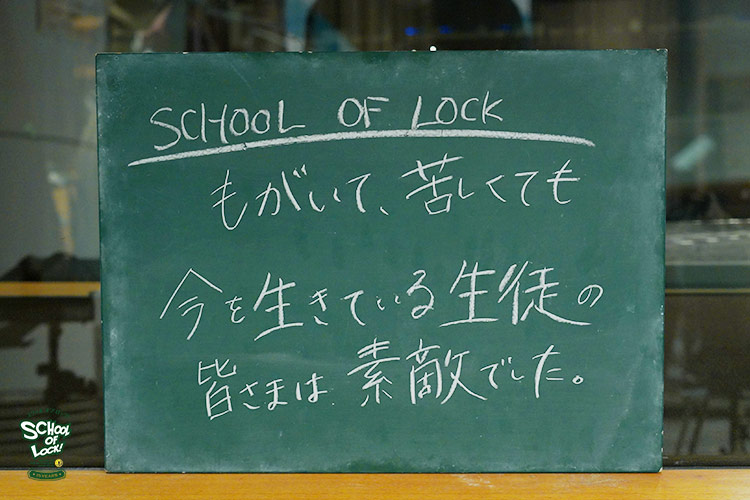 SCHOOL OF LOCK
もがいて、苦しくても
今を生きている生徒の
皆さまは素敵でした。
SCHOOL
OF
LOCK!